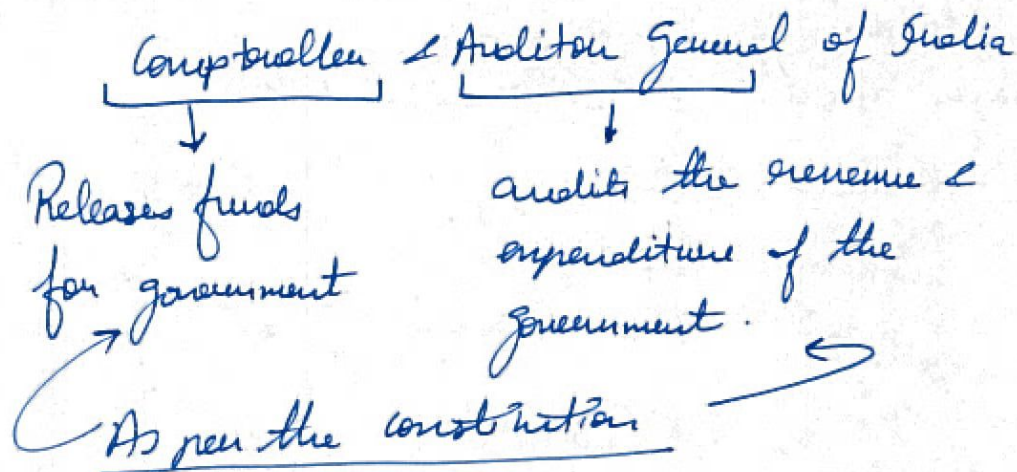 Comptroller & Auditor General of India
Releases funds
for government
audits the revenue &
expenditure of the
government.
As per the constitution